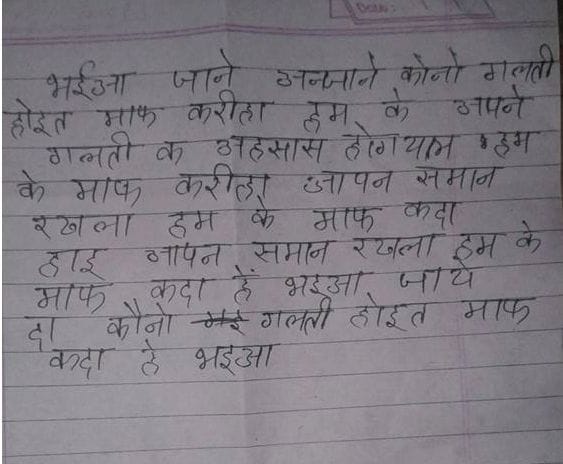 भईआ जाने अनजाने कोनो गलती
होइत माफ करीहा हम के अपने
गलती क अहसास होगयाल हम
के माफ करीहा आपन समान
रखला हम के माफ कदा
हाइ आपन समान रखला हम के
माफ कदा हें भइआ जाये
दा कौनो गलती होइत माफ
कदा हे भइआ